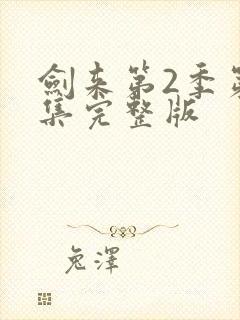 劍来第2季第
集完整版
兔澤